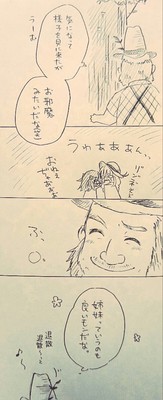 気になって
様子を見に来たが
うーむ
お邪魔
みたいだなぁ
うわぁああん、
リンネさん
おねえ
ふ、
姉妹っていつのも
良いモンだな。
退散
退散〜っ